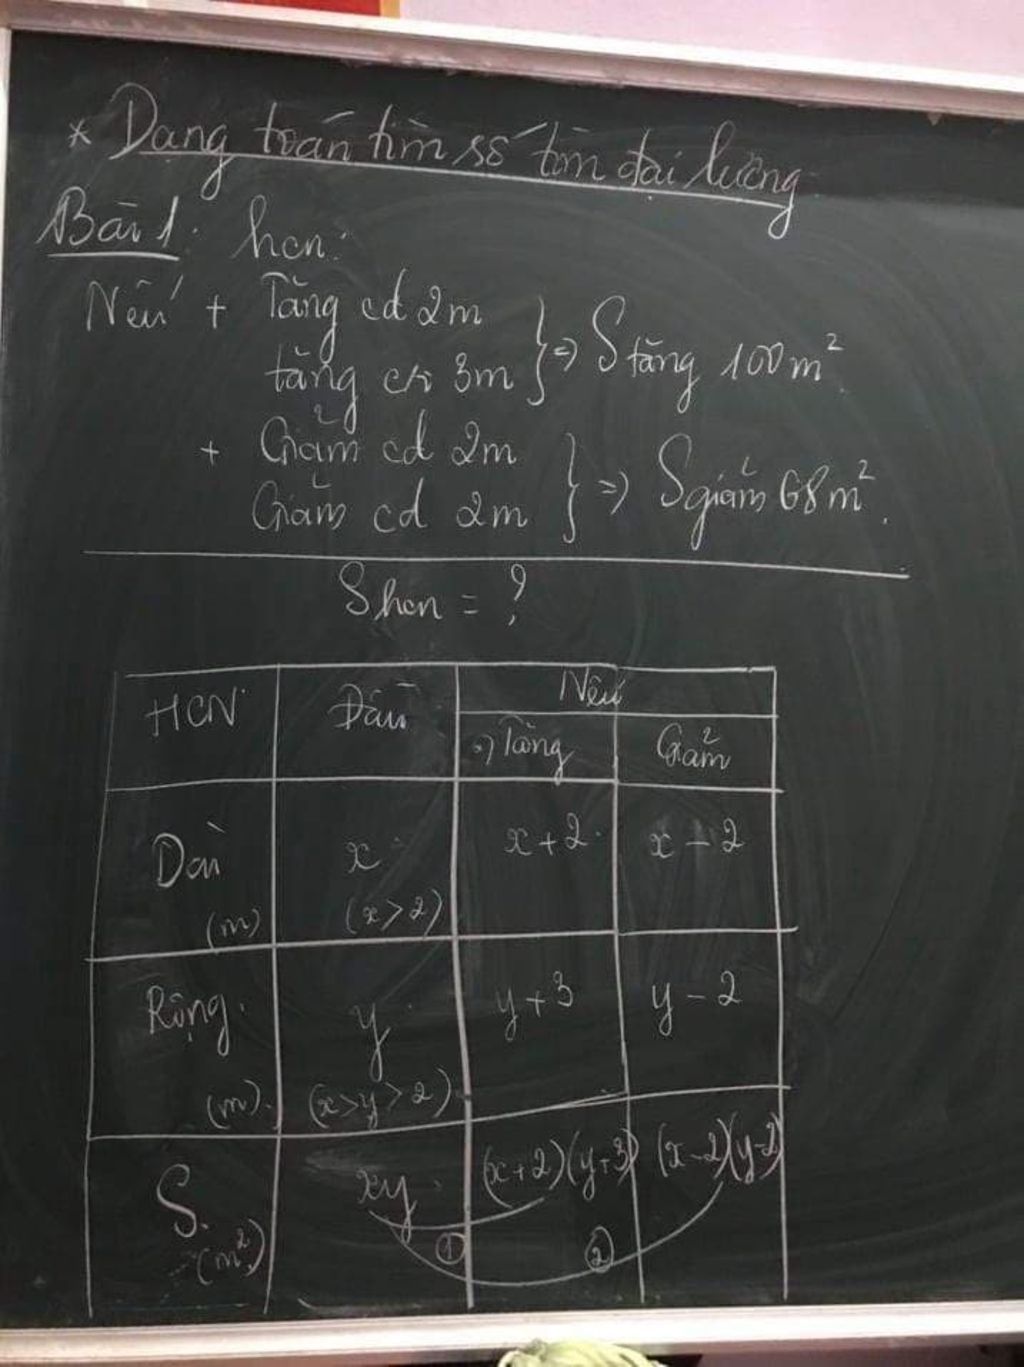 * Dạng toán tìm số tìm đại lượng
Bài 1: hcn:
Nếu + Tăng cd 2m
tăng cr 3m } => S tăng 100m²
+ Giảm cd 2m
Giảm cd 2m } => S giảm 68m².
Shcn = ?
HCN Đầu Nếu
Tăng Giảm
Dài (m) x (x>2) x+2 x-2
Rộng (m) y (x>y>2) y+3 y-2
S (m²) xy (x+2)(y+3) (x-2)(y-2)
① ②